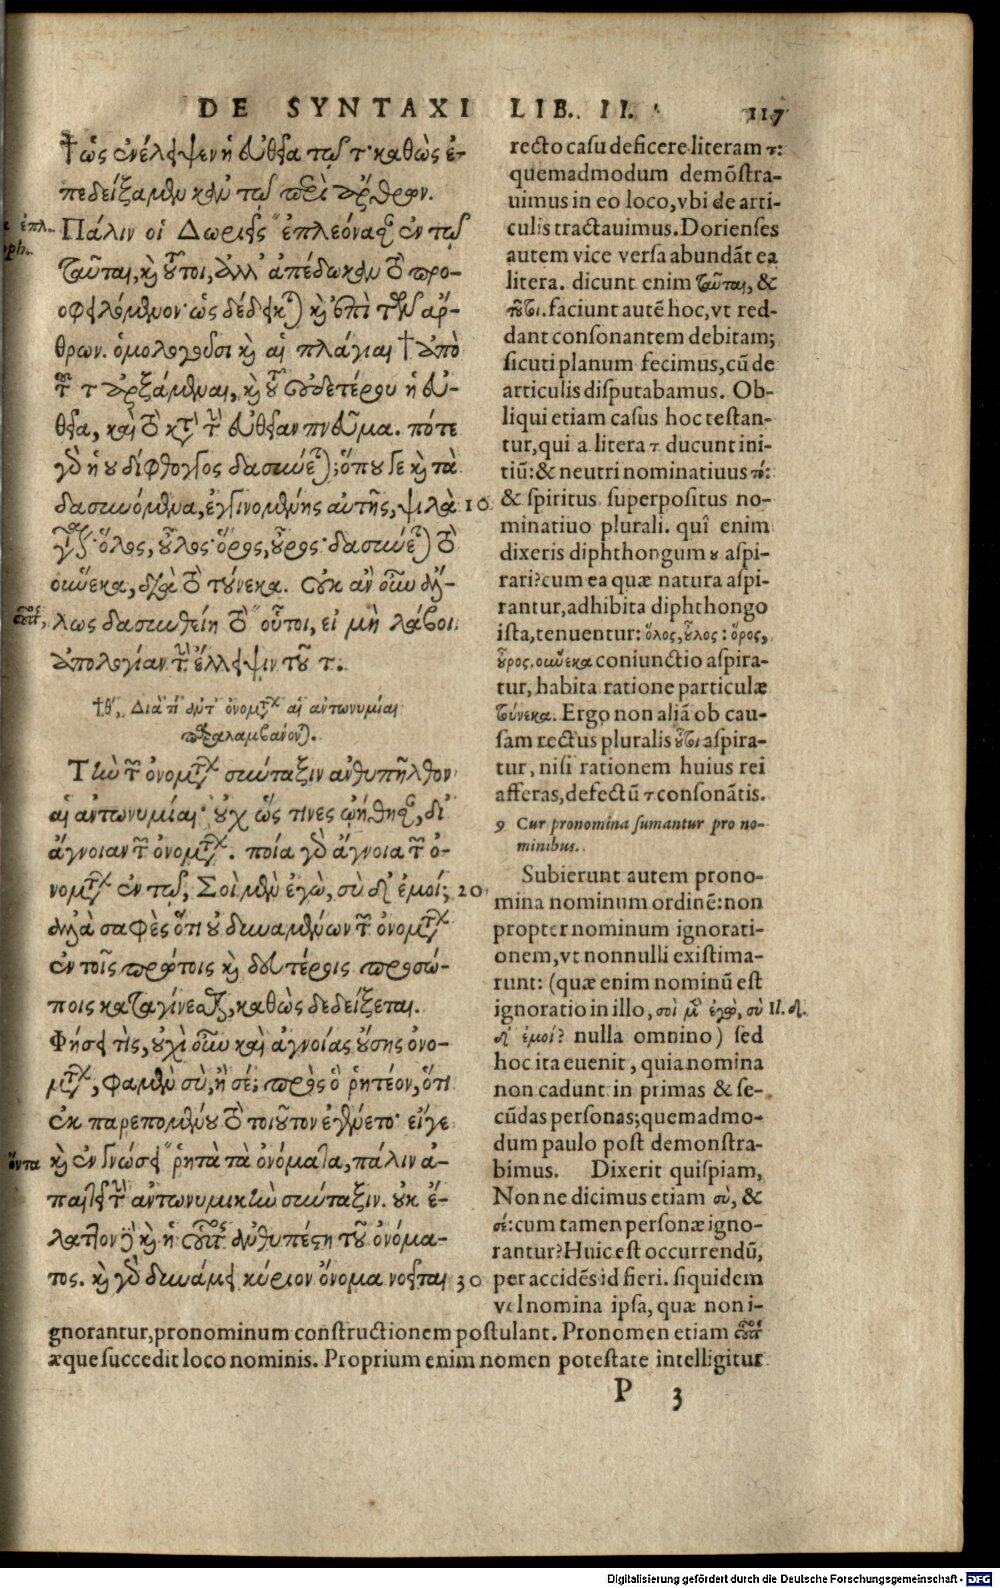 DE SYNTAXI LIB. II. 117
† ὡς ἐνέλειψεν ἡ εὐθεῖα τῷ τ· καθὼς ἐ-
πεδείξαμεν κἀν τῷ περὶ ἄρθρων.
Πάλιν οἱ Δωριεῖς ἐπλεόνασαν ἐν τῷ
ταῦται, καὶ τοῦτοι, ἀλλ' ἀπέδωκαν τὸ προ-
οφειλόμενον· ὡς δέδεικται καὶ ἐπὶ τῶν ἄρ-
θρων. ὁμολογοῦσι καὶ αἱ πλάγιαι † ἀπὸ
τοῦ τ ἀρξάμεναι, καὶ τοῦ οὐδετέρου ἡ εὐ-
θεῖα, καὶ τὸ κατὰ τὴν εὐθεῖαν πνεῦμα. πότε
γὰρ ἡ ου δίφθογγος δασύνεται; ὅπου γε καὶ τὰ
δασυνόμενα, ἐγγινομένης αὐτῆς, ψιλὰ 10
ὅλος, οὖλος· ὅρος, οὖρος· δασύνεται τὸ
οὕνεκα, διὰ τὸ τούνεκα. Οὐκ ἂν οὖν ἄλ-
λως δασυνθείη τὸ οὗτοι, εἰ μὴ λάβοι
ἀπολογίαν τὴν ἔλλειψιν τοῦ τ.
†θ´, Διὰ τί ἀντ' ὀνομάτων αἱ ἀντωνυμίαι
παραλαμβάνονται.
Τὴν τῶν ὀνομάτων σύνταξιν ἀνθυπῆλθον
αἱ ἀντωνυμίαι· οὐχ ὥς τινες ᾠήθησαν, δι'
ἄγνοιαν τῶν ὀνομάτων. ποία γὰρ ἄγνοια τῶν ὀ-
νομάτων ἐν τῷ, Σοὶ μὲν ἐγὼ, σὺ δ' ἐμοί; 20
ἀλλὰ σαφὲς ὅτι οὐ δυναμένων τῶν ὀνομάτων
ἐν τοῖς πρώτοις καὶ δευτέροις προσώ-
ποις καταγίνεσθαι, καθὼς δεδείξεται.
Φήσει τὶς, οὐχὶ οὖν καὶ ἀγνοίας οὔσης ὀνο-
μάτων, φαμὲν σὺ, ἢ σέ; πρὸς ὃ ῥητέον, ὅτι
ἐκ παρεπομένου τὸ τοιοῦτον ἐγένετο· εἴγε
καὶ ἐν γνώσει ῥητὰ τὰ ὀνόματα, πάλιν ἀ-
παιτεῖ τὴν ἀντωνυμικὴν σύνταξιν. οὐκ ἔ-
λαττον γὰρ καὶ ἡ οὗτος ἀνθυπέστη τοῦ ὀνόμα-
τος. καὶ γὰρ δυνάμει κύριον ὄνομα νοεῖται 30
recto casu deficere literam τ:
quemadmodum demõstra-
uimus in eo loco, vbi de arti-
culis tractauimus. Dorienses
autem vice versa abundãt ea
litera. dicunt enim ταῦται, &
τοῦτοι. faciunt autẽ hoc, vt red-
dant consonantem debitam;
sicuti planum fecimus, cũ de
articulis disputabamus. Ob-
liqui etiam casus hoc testan-
tur, qui a litera τ ducunt ini-
tiũ: & neutri nominatiuus τό:
& spiritus superpositus no-
minatiuo plurali. quî enim
dixeris diphthongum ȣ aspi-
rari? cum ea quæ natura aspi-
rantur, adhibita diphthongo
ista, tenuentur: ὅλος, οὖλος: ὅρος,
οὖρος. οὕνεκα coniunctio aspira-
tur, habita ratione particulæ
τούνεκα. Ergo non aliã ob cau-
sam rectus pluralis οὗτοι aspira-
tur, nisi rationem huius rei
afferas, defectũ τ consonãtis.
9 Cur pronomina sumantur pro no-
minibus.
Subierunt autem prono-
mina nominum ordinẽ: non
propter nominum ignorati-
onem, vt nonnulli existima-
runt: (quæ enim nominũ est
ignoratio in illo, σοὶ μὲν ἐγὼ, σὺ Il. α.
δ' ἐμοί? nulla omnino) sed
hoc ita euenit, quia nomina
non cadunt in primas & se-
cũdas personas; quemadmo-
dum paulo post demonstra-
bimus. Dixerit quispiam,
Nonne dicimus etiam σὺ, &
σέ: cum tamen personæ igno-
rantur? Huic est occurrendũ,
per accidẽs id fieri. siquidem
vel nomina ipsa, quæ non i-
gnorantur, pronominum constructionem postulant. Pronomen etiam οὗτος
æque succedit loco nominis. Proprium enim nomen potestate intelligitur
P 3